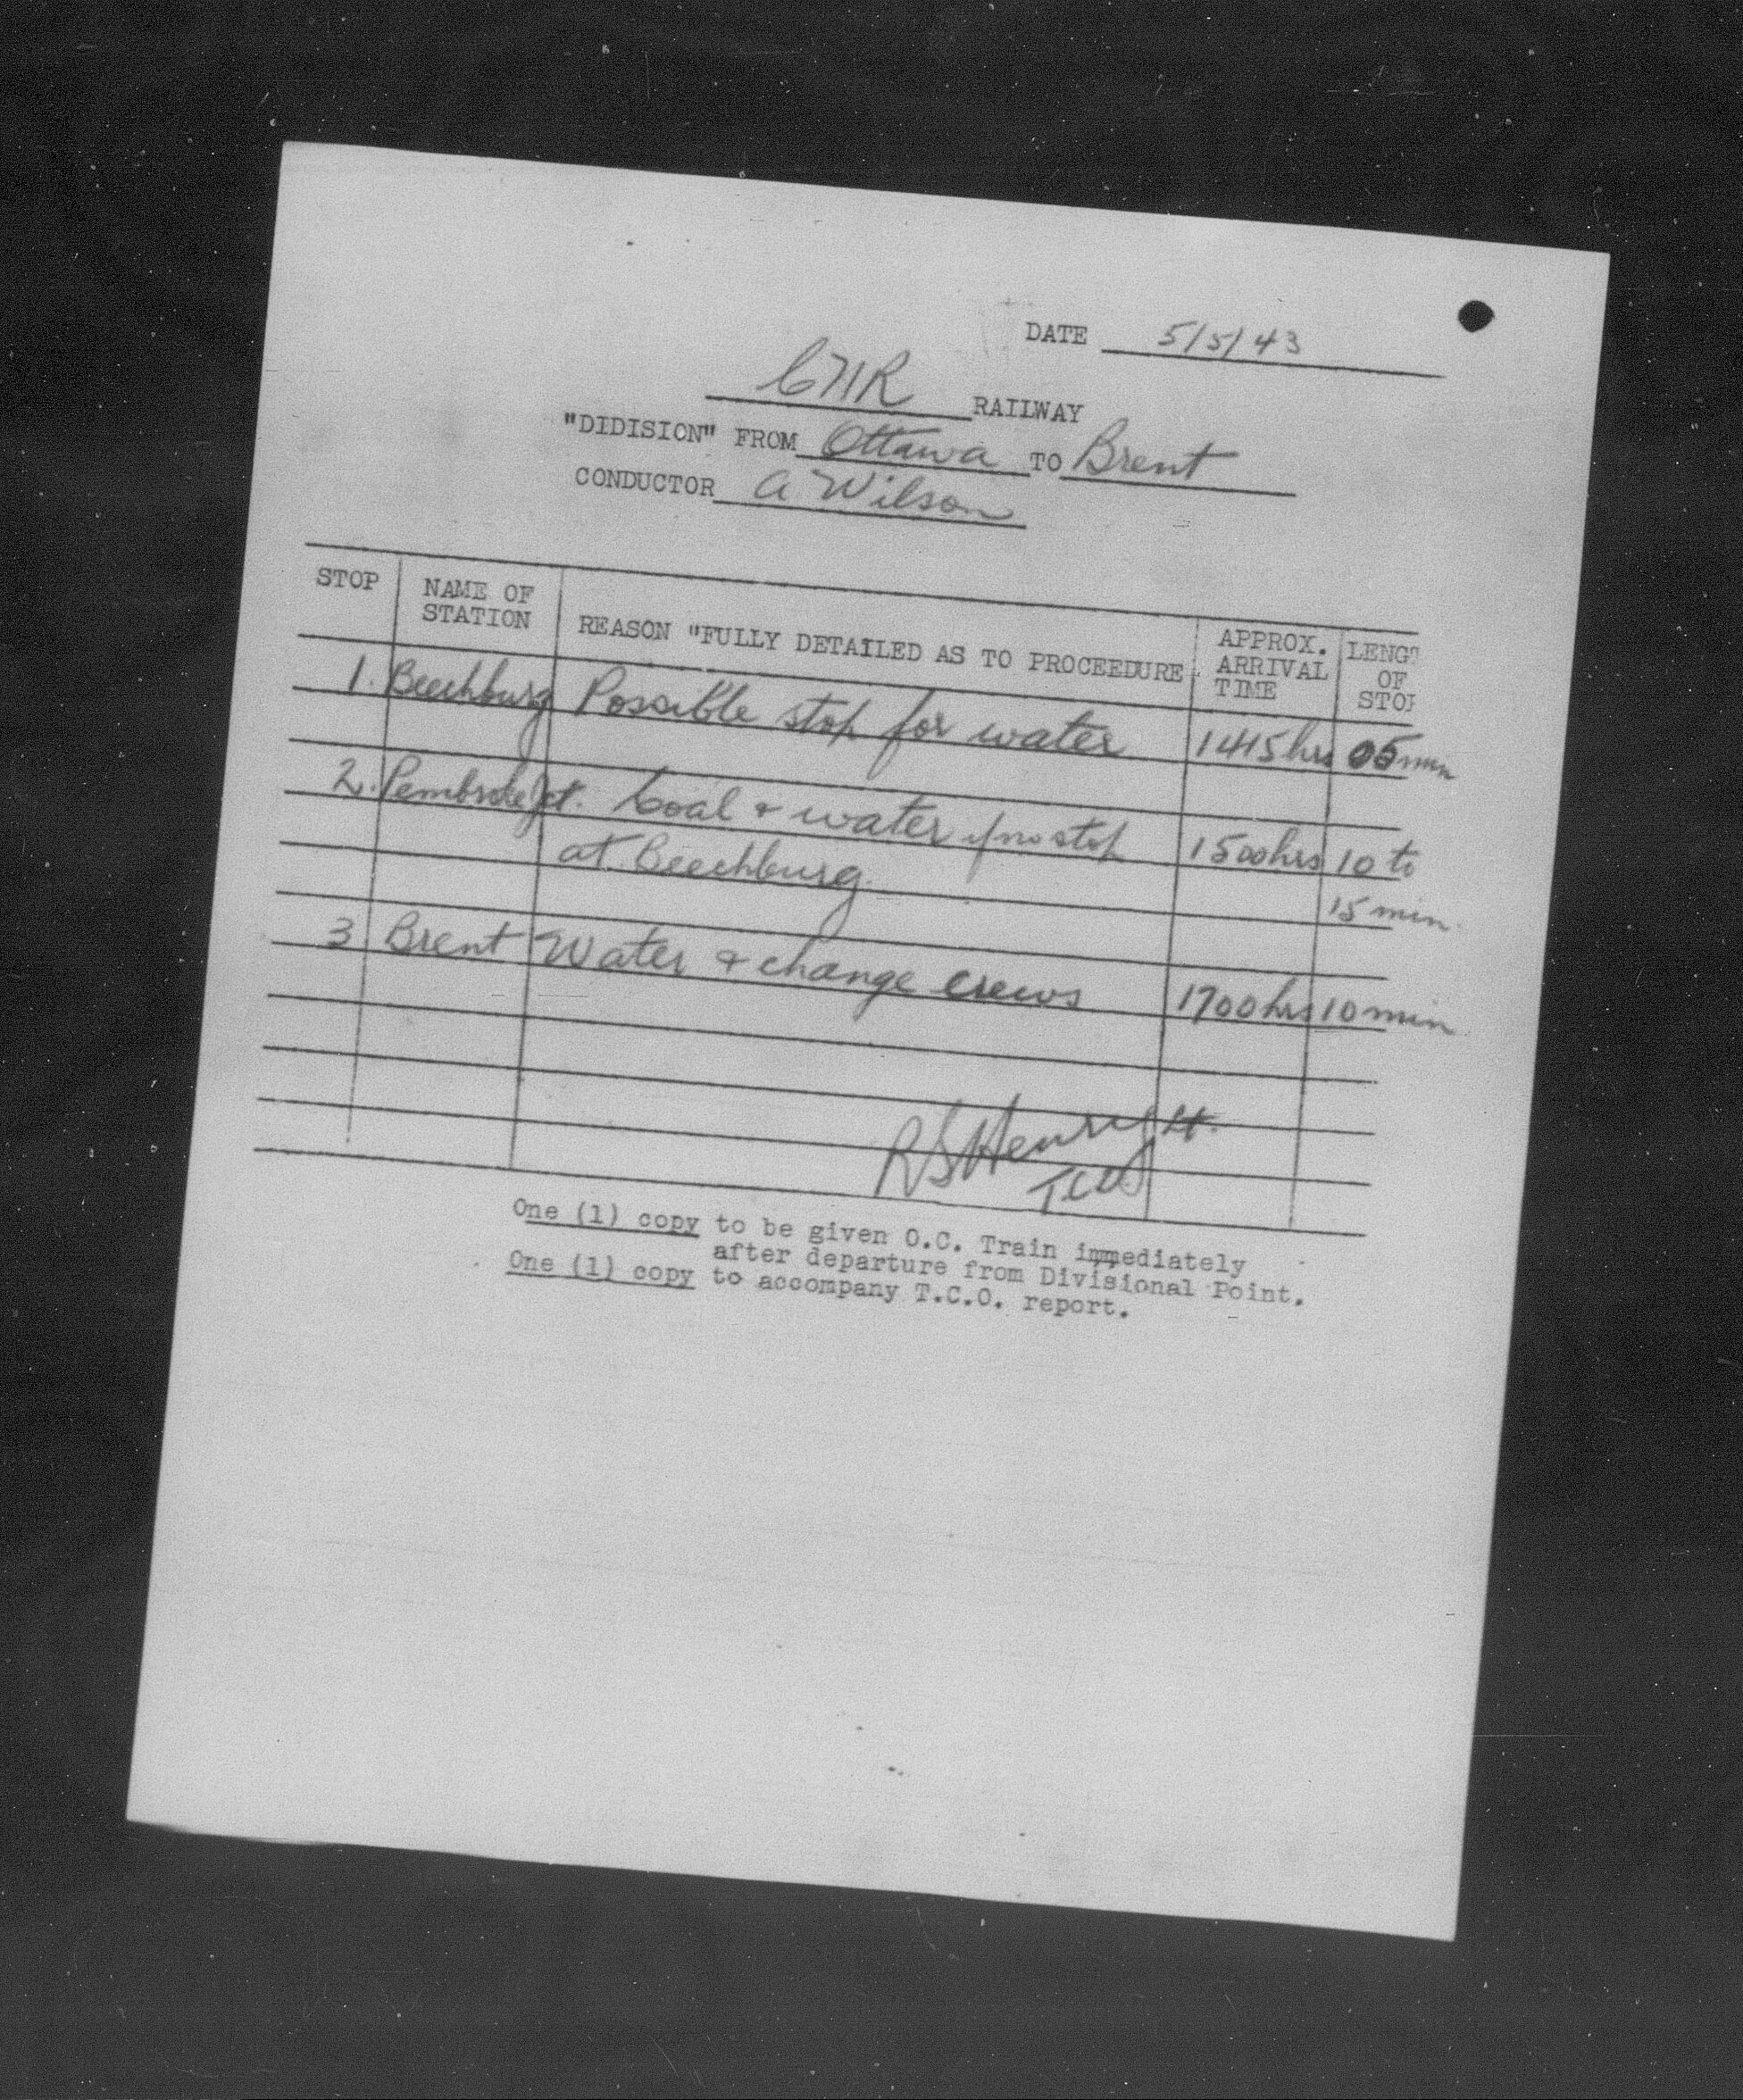 DATE 5/5/43
CNR RAILWAY
"DIDISION" FROM Ottawa TO Brent
CONDUCTOR A Wilson
STOP NAME OF STATION REASON "FULLY DETAILED AS TO PROCEEDURE APPROX. ARRIVAL TIME LENGT OF STOP
1. Beechburg Possible stop for water 1415hrs 05 min
2. Pembroke Jct. Coal & water if no stop 1500hrs 10 to
at Beechburg. 15 min.
3 Brent Water & change crews 1700hrs 10 min
RS Henry Lt.
TCO
One (1) copy to be given O.C. Train immediately
after departure from Divisional Point.
One (1) copy to accompany T.C.O. report.